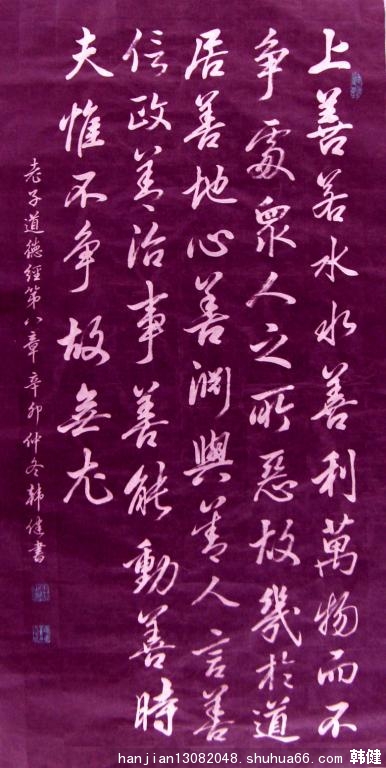 上善若水水善利萬物而不
争處衆人之所惡故幾於道
居善地心善淵與善人言善
信政善治事善能動善時
夫惟不争故無尤
老子道德經第八章辛卯仲冬韩健書
hanjian13082048.shuhua66.com 韩健